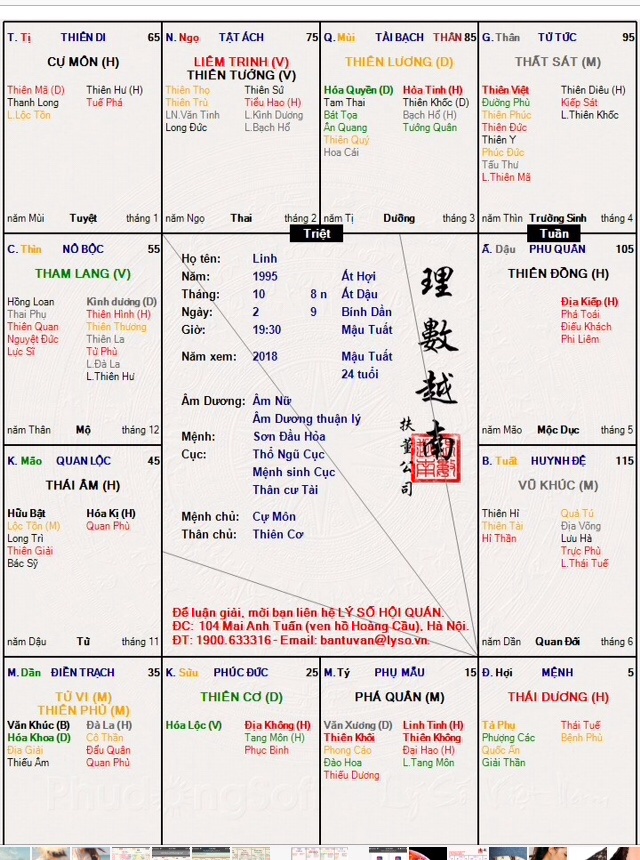 T. Tị THIÊN DI 65
CỰ MÔN (H)
Thiên Mã (D) Thiên Hư (H)
Thanh Long Tuế Phá
L.Lộc Tồn
năm Mùi Tuyệt tháng 1
N. Ngọ TẬT ÁCH 75
LIÊM TRINH (V)
THIÊN TƯỚNG (V)
Thiên Thọ Thiên Sứ
Thiên Trù Tiểu Hao (H)
LN.Văn Tinh L.Kình Dương
Long Đức L.Bạch Hổ
năm Ngọ Thai tháng 2
Q. Mùi TÀI BẠCH THÂN 85
THIÊN LƯƠNG (D)
Hóa Quyền (D) Hỏa Tinh (H)
Tam Thai Thiên Khốc (D)
Bát Tọa Bạch Hổ (H)
Ân Quang Tướng Quân
Thiên Quý
Hoa Cái
năm Tị Dưỡng tháng 3
G. Thân TỬ TỨC 95
THẤT SÁT (M)
Thiên Việt Thiên Diêu (H)
Đường Phù Kiếp Sát
Thiên Phúc L.Thiên Khốc
Thiên Đức
Thiên Y
Phúc Đức
Tấu Thư
L.Thiên Mã
năm Thìn Trường Sinh tháng 4
Triệt
Tuần
C. Thìn NÔ BỘC 55
THAM LANG (V)
Hồng Loan Kình dương (D)
Thai Phụ Thiên Hình (H)
Thiên Quan Thiên Thương
Nguyệt Đức Thiên La
Lực Sĩ Tử Phù
L.Đà La
L.Thiên Hư
năm Thân Mộ tháng 12
Họ tên: Linh
Năm: 1995 Ất Hợi
Tháng: 10 8 n Ất Dậu
Ngày: 2 9 Bính Dần
Giờ: 19:30 Mậu Tuất
Năm xem: 2018 Mậu Tuất
24 tuổi
Âm Dương: Âm Nữ
Âm Dương thuận lý
Mệnh: Sơn Đầu Hỏa
Cục: Thổ Ngũ Cục
Mệnh sinh Cục
Thân cư Tài
Mệnh chủ: Cự Môn
Thân chủ: Thiên Cơ
理數越南
扶董公司
Để luận giải, mời bạn liên hệ LÝ SỐ HỘI QUÁN.
ĐC: 104 Mai Anh Tuấn (ven hồ Hoàng Cầu), Hà Nội.
ĐT: 1900.633316 - Email: bantuvan@lyso.vn.
Ấ. Dậu PHU QUÂN 105
THIÊN ĐỒNG (H)
Địa Kiếp (H)
Phá Toái
Điếu Khách
Phi Liêm
năm Mão Mộc Dục tháng 5
K. Mão QUAN LỘC 45
THÁI ÂM (H)
Hữu Bật Hóa Kị (H)
Lộc Tồn (M) Quan Phù
Long Trì
Thiên Giải
Bác Sỹ
năm Dậu Tử tháng 11
B. Tuất HUYNH ĐỆ 115
VŨ KHÚC (M)
Thiên Hỉ Quả Tú
Thiên Tài Địa Võng
Hỉ Thần Lưu Hà
Trực Phù
L.Thái Tuế
năm Dần Quan Đới tháng 6
M. Dần ĐIỀN TRẠCH 35
TỬ VI (M)
THIÊN PHỦ (M)
Văn Khúc (B) Đà La (H)
Hóa Khoa (D) Cô Thần
Địa Giải Đẩu Quân
Thiếu Âm Quan Phủ
K. Sửu PHÚC ĐỨC 25
THIÊN CƠ (D)
Hóa Lộc (V) Địa Không (H)
Tang Môn (H)
Phục Binh
M. Tý PHỤ MẪU 15
PHÁ QUÂN (M)
Văn Xương (D) Linh Tinh (H)
Thiên Khôi Thiên Không
Phong Cáo Đại Hao (H)
Đào Hoa L.Tang Môn
Thiếu Dương
Đ. Hợi MỆNH 5
THÁI DƯƠNG (H)
Tả Phụ Thái Tuế
Phượng Các Bệnh Phù
Quốc Ấn
Giải Thần